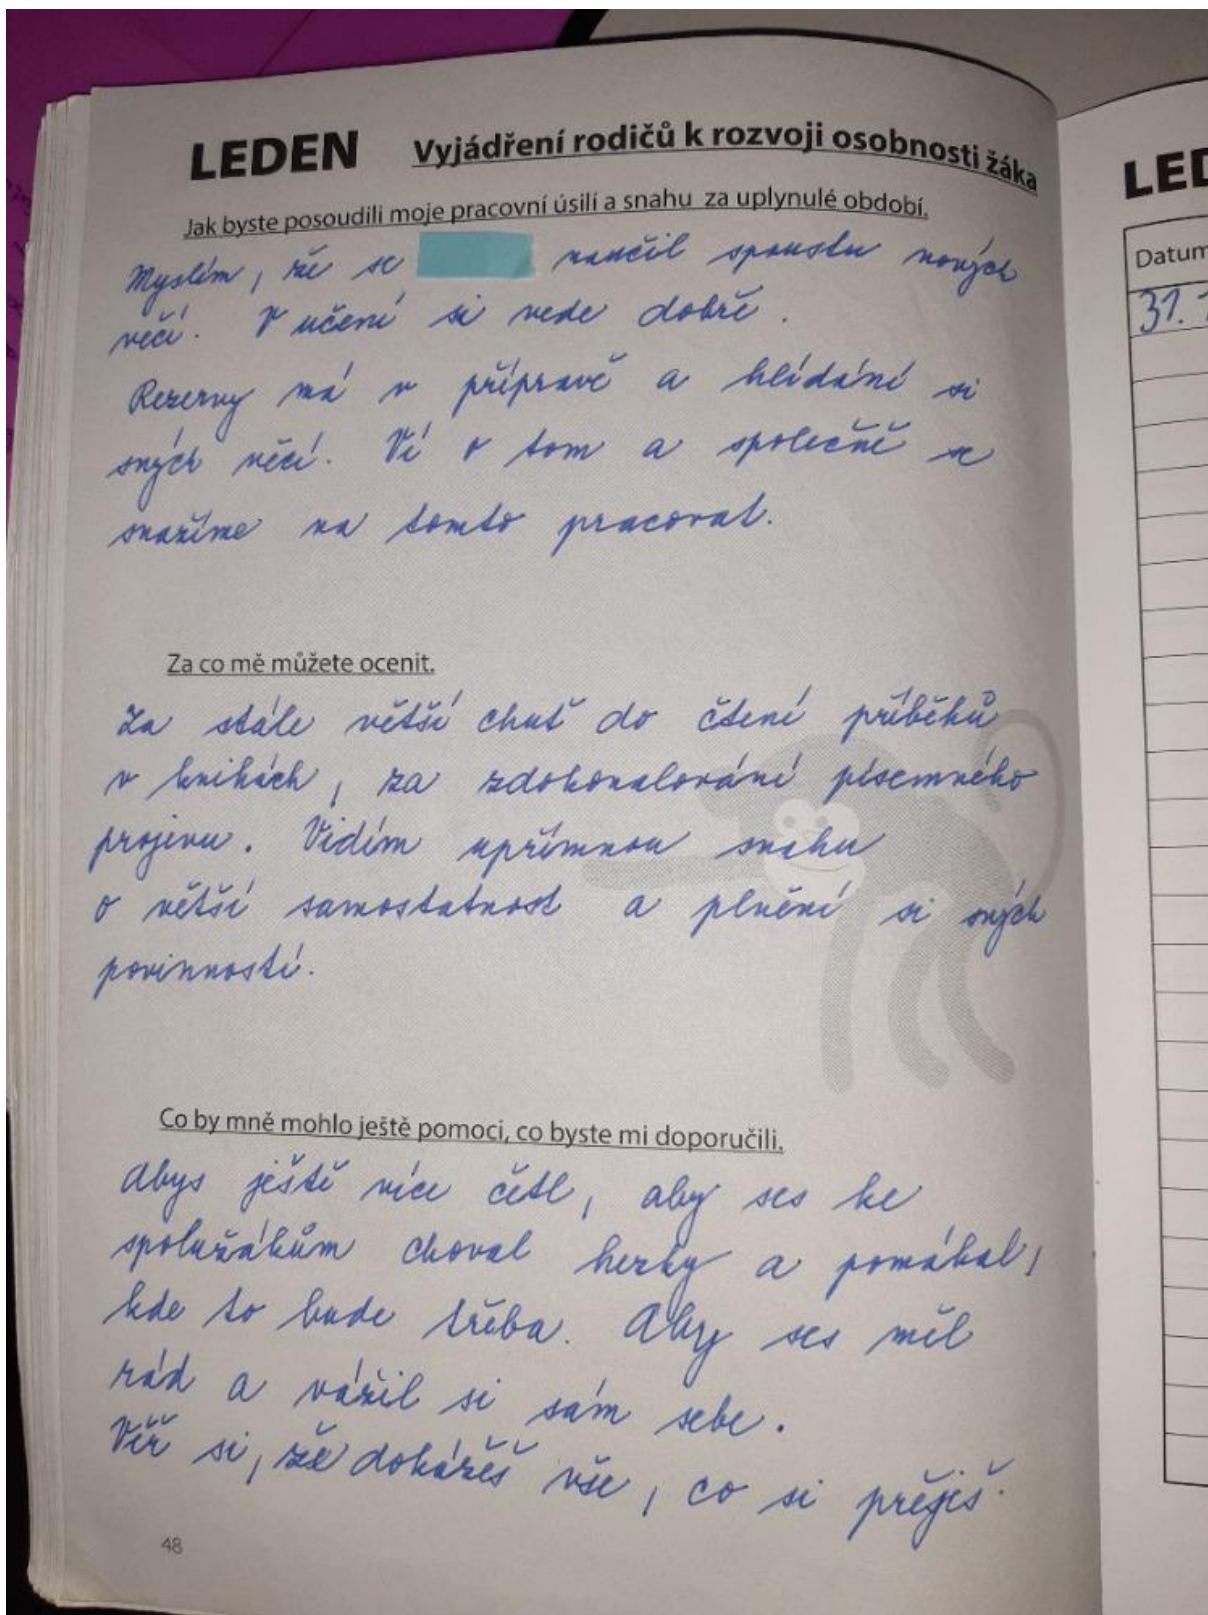 LEDEN Vyjádření rodičů k rozvoji osobnosti žáka
Jak byste posoudili moje pracovní úsilí a snahu za uplynulé období.
Myslím, že se naučil spoustu nových
věcí. V učení si vede dobře.
Rezervy má v přípravě a hlídání si
svých věcí. Ví o tom a společně se
snažíme na tomto pracovat.
Za co mě můžete ocenit.
Za stále větší chuť do čtení příběhů
v knihách, za zdokonalování písemného
projevu. Vidím upřímnou snahu
o větší samostatnost a plnění si svých
povinností.
Co by mně mohlo ještě pomoci, co byste mi doporučili.
Abys ještě více četl, aby ses ke
spolužákům choval hezky a pomáhal,
kde to bude třeba. Aby ses měl
rád a vážil si sám sebe.
Věř si, že dokážeš vše, co si přeješ.
48
LED
Datum
31.